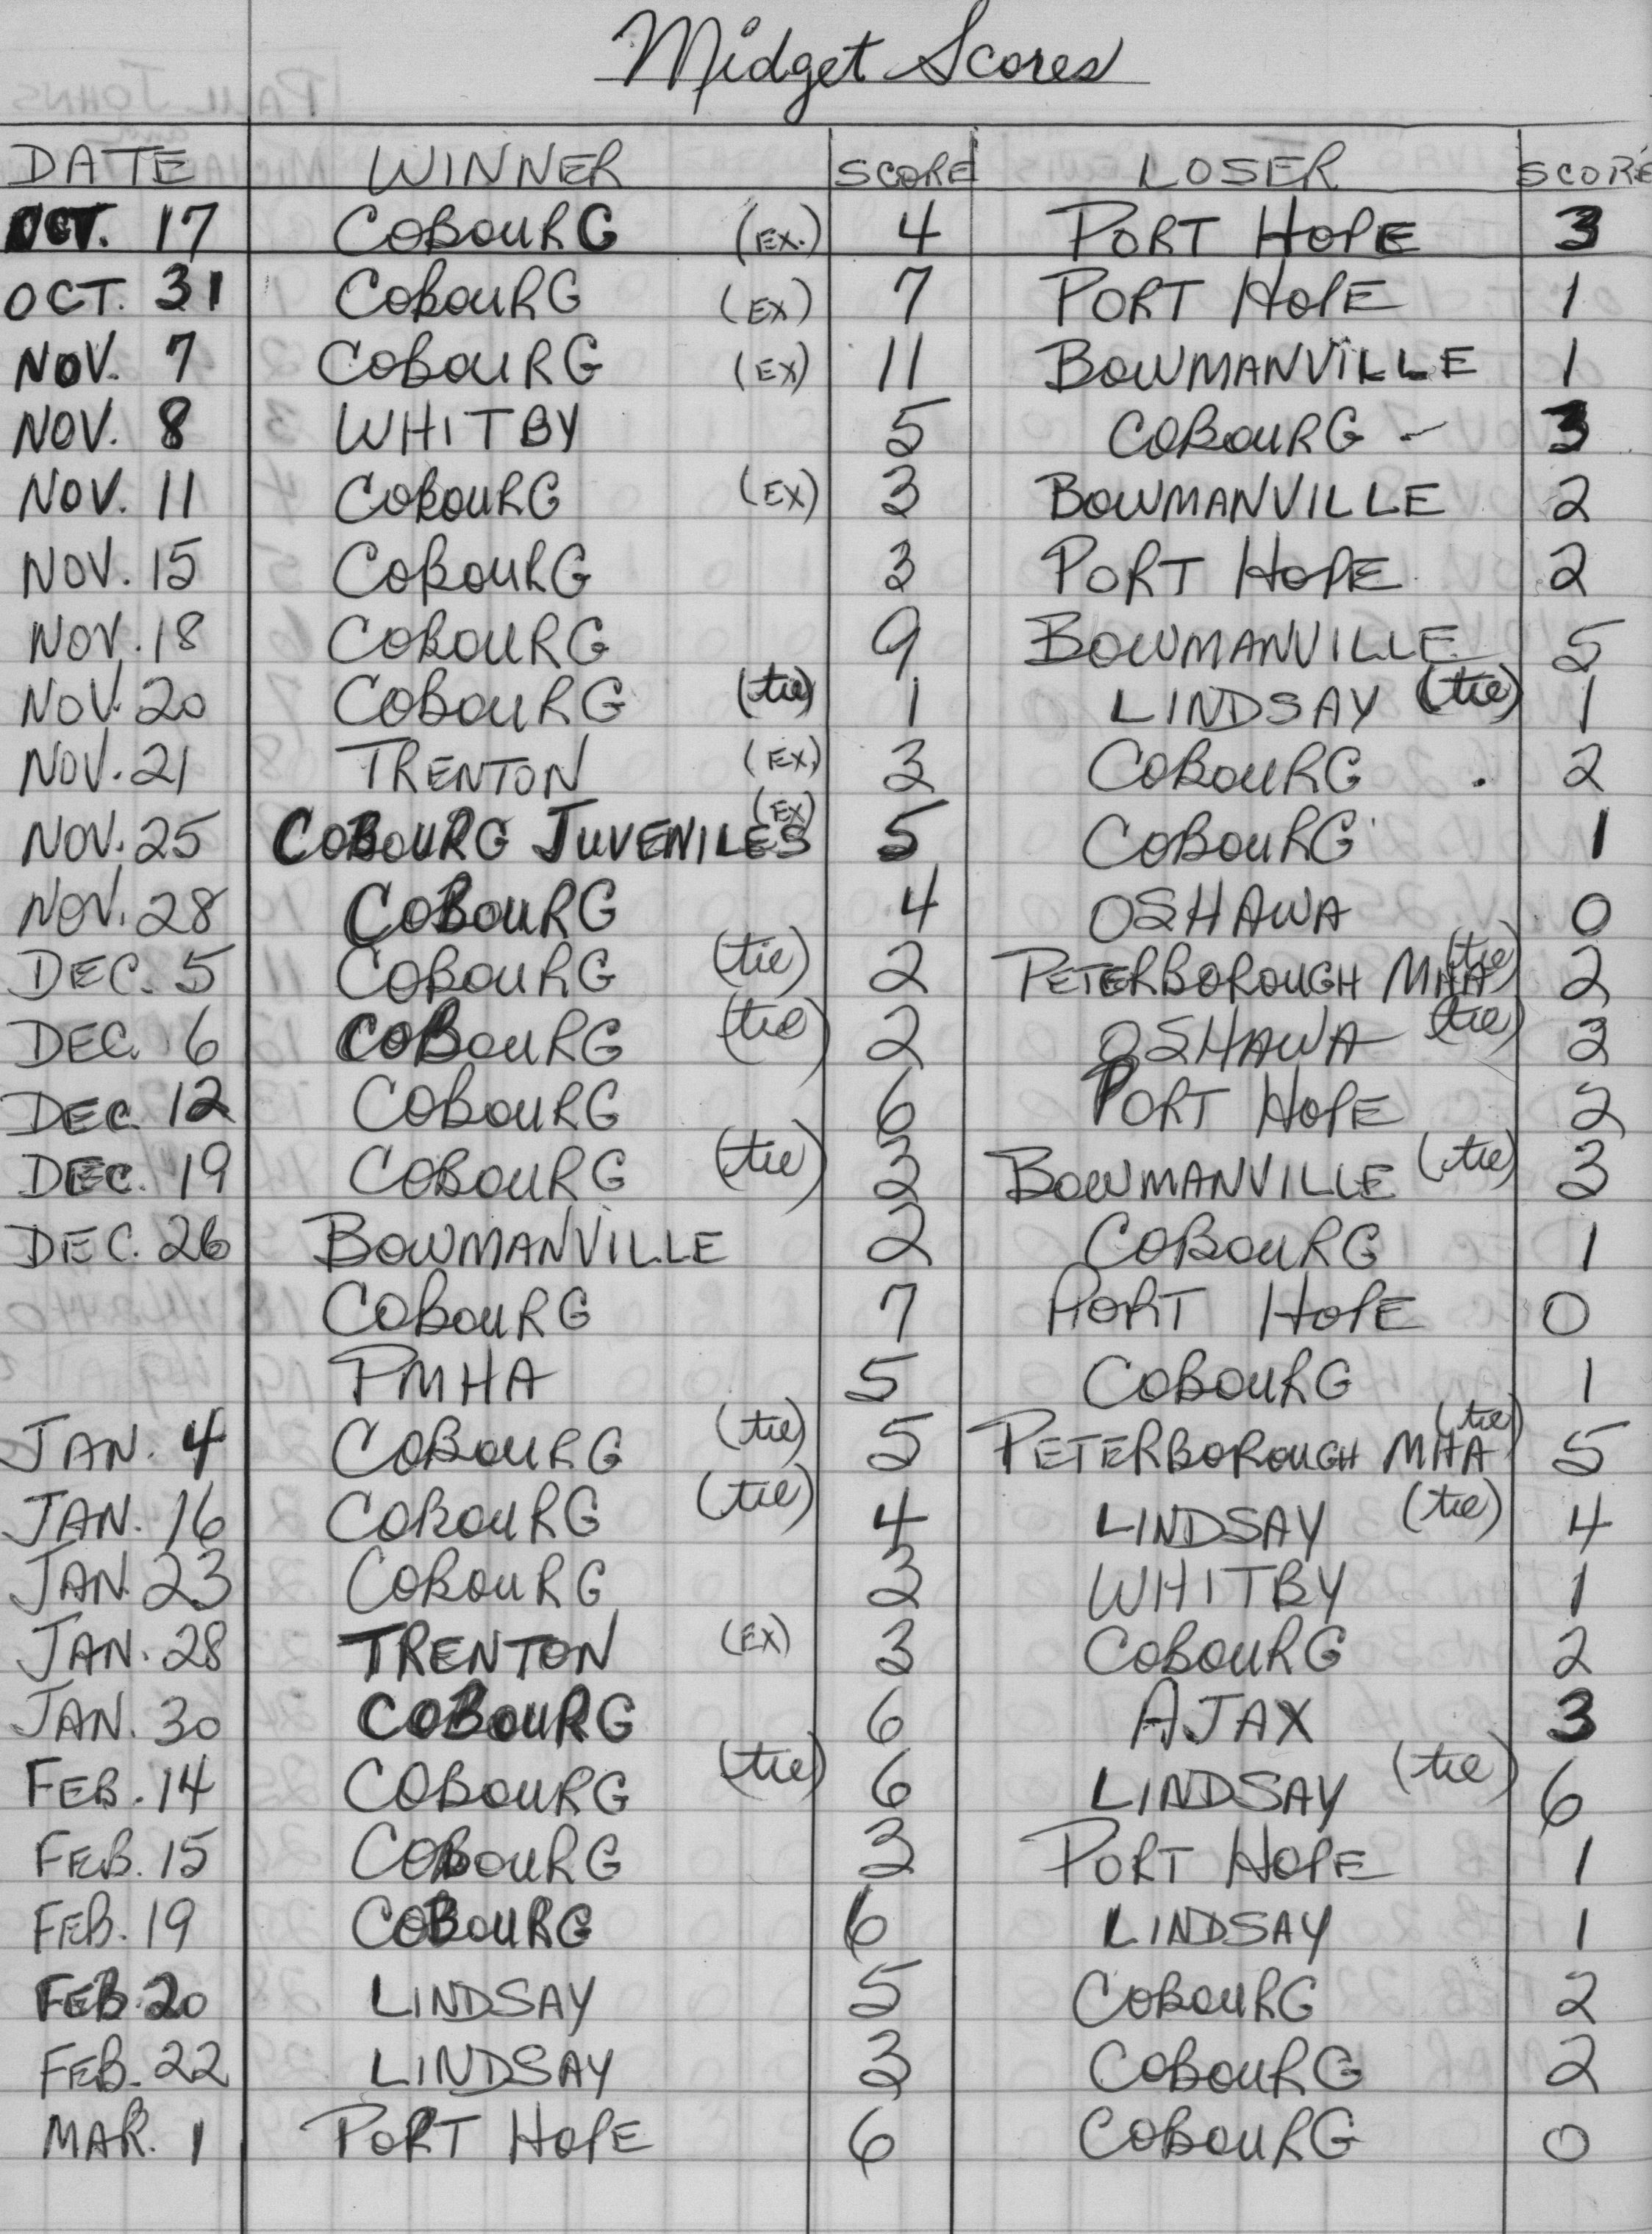 Midget Scores
DATE WINNER SCORE LOSER SCORE
OCT. 17 COBOURG (EX.) 4 PORT HOPE 3
OCT. 31 COBOURG (EX) 7 PORT HOPE 1
NOV. 7 COBOURG (EX) 11 BOWMANVILLE 1
NOV. 8 WHITBY 5 COBOURG - 3
NOV. 11 COBOURG (EX) 3 BOWMANVILLE 2
NOV. 15 COBOURG 3 PORT HOPE 2
NOV. 18 COBOURG 9 BOWMANVILLE 5
NOV. 20 COBOURG (tie) 1 LINDSAY (tie) 1
NOV. 21 TRENTON (EX) 3 COBOURG 2
NOV. 25 COBOURG JUVENILES (EX) 5 COBOURG 1
NOV. 28 COBOURG 4 OSHAWA 0
DEC. 5 COBOURG (tie) 2 PETERBOROUGH MHA (tie) 2
DEC. 6 COBOURG (tie) 2 OSHAWA (tie) 2
DEC. 12 COBOURG 6 PORT HOPE 2
DEC. 19 COBOURG (tie) 3 BOWMANVILLE (tie) 3
DEC. 26 BOWMANVILLE 2 COBOURG 1
COBOURG 7 PORT HOPE 0
PMHA 5 COBOURG 1
JAN. 4 COBOURG (tie) 5 PETERBOROUGH MHA (tie) 5
JAN. 16 COBOURG (tie) 4 LINDSAY (tie) 4
JAN. 23 COBOURG 3 WHITBY 1
JAN. 28 TRENTON (EX) 3 COBOURG 2
JAN. 30 COBOURG 6 AJAX 3
FEB. 14 COBOURG (tie) 6 LINDSAY (tie) 6
FEB. 15 COBOURG 3 PORT HOPE 1
FEB. 19 COBOURG 6 LINDSAY 1
FEB. 20 LINDSAY 5 COBOURG 2
FEB. 22 LINDSAY 3 COBOURG 2
MAR. 1 PORT HOPE 6 COBOURG 0